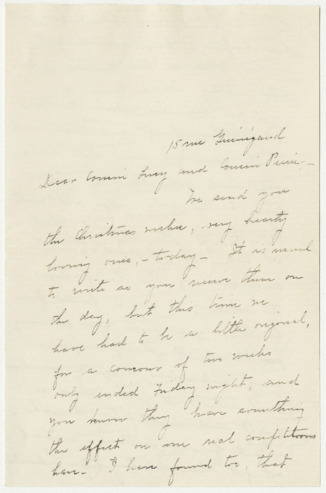 15 rue Guénégaud
Dear Cousin Lucy and Cousin Pierie -
We send you
the Christmas wishes, very hearty
loving ones, - today - It is usual
to write as you receive them on
the day, but this time we
have had to be a little original,
for a concours of two weeks
only ended Friday night, and
you know they have something
the effect on one real competitions
have. I have found too, that